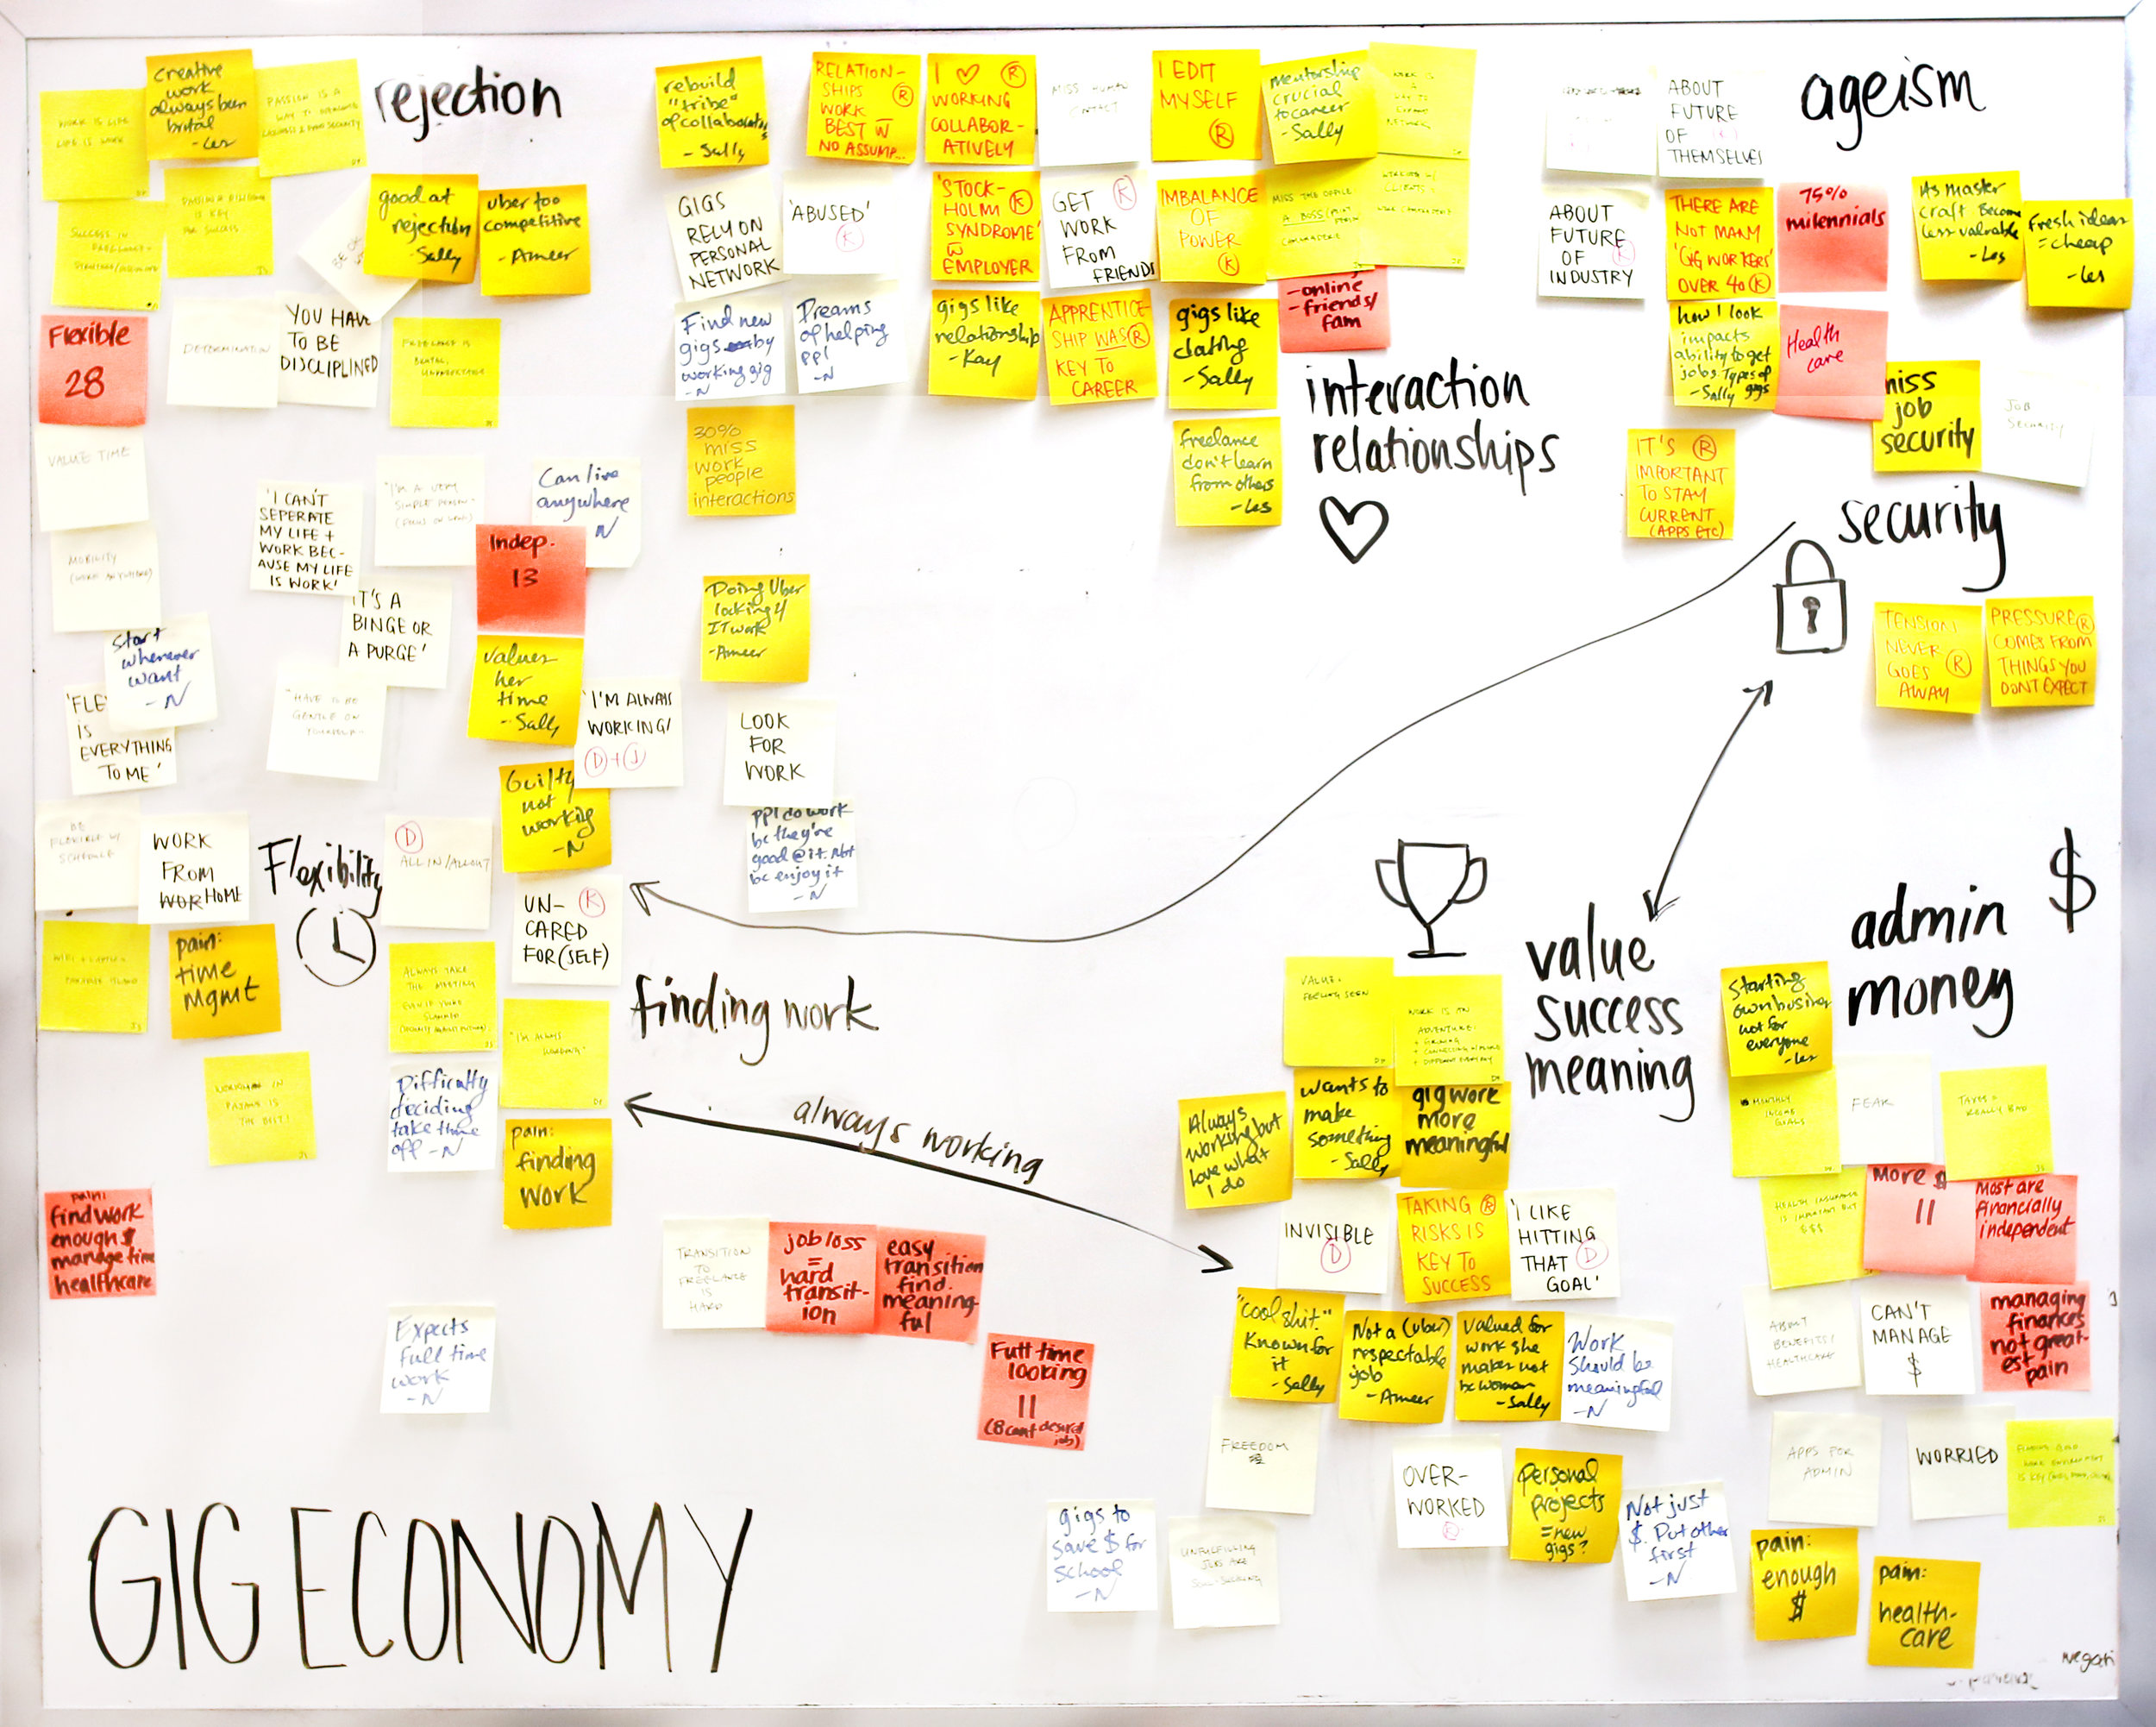 WORK IS LIFE
LIFE IS WORK
creative
work
always been
brutal
- Les
PASSION IS A
rejection
SUCCESS IS
PASSION &
IS KEY
good at
rejection
- Sally
uber too
competitive
- Ameer
Flexible
28
DETERMINATION
YOU HAVE
TO BE
DISCIPLINED
FREELANCE IS
BRUTAL,
rebuild
"tribe"
of collaborators
- Sally
RELATION-
SHIPS Ⓡ
WORK
BEST W̄
NO ASSUMP...
I ♡ Ⓡ
WORKING
COLLABOR-
ATIVELY
MISS HUMAN
CONTACT
I EDIT
MYSELF
Ⓡ
mentorship
crucial
to career
- Sally
WORK IS
A
WAY TO
NETWORK
GIGS
RELY ON
PERSONAL
NETWORK
'ABUSED'
Ⓚ
'STOCK-
HOLM Ⓚ
SYNDROME'
W̄
EMPLOYER
GET Ⓚ
WORK
FROM
FRIENDS
IMBALANCE
OF
POWER
Ⓚ
MISS THE OFFICE
Find new
gigs by
working gig
- N
Dreams
of helping
ppl
- N
gigs like
relationship
- Kay
APPRENTICE-
SHIP WAS Ⓡ
KEY TO
CAREER
gigs like
dating
- Sally
- online
- friends/
fam
30%
miss
work
people
interactions
freelance
don't learn
from others
- Les
interaction
relationships
ABOUT
FUTURE
OF
THEMSELVES
ageism
ABOUT
FUTURE
OF Ⓚ
INDUSTRY
THERE ARE
NOT MANY
'GIG WORKERS'
OVER 40 Ⓚ
75%
milennials
As master
craft Become
less valuable
- Les
Fresh ideas
= cheap
- Les
how I look
impacts
ability to get
jobs. Types of
gigs
- Sally
Health
care
miss
job
security
JOB
SECURITY
IT'S Ⓡ
IMPORTANT
TO STAY
CURRENT
(APPS ETC)
security
TENSION
NEVER
GOES Ⓡ
AWAY
PRESSURE Ⓡ
COMES FROM
THINGS YOU
DON'T EXPECT
VALUE TIME
'I CAN'T
SEPERATE
MY LIFE +
WORK BEC-
AUSE MY LIFE
IS WORK'
"I'M A VERY
SIMPLE PERSON"
Can live
anywhere
N
MOBILITY
(WORK ANYWHERE)
Indep.
13
IT'S A
BINGE OR
A PURGE'
Start
whenever
want
- N
'FLE
IS
EVERYTHING
TO ME'
"HAVE TO BE
GENTLE ON
YOURSELF"
values
her
time
- Sally
'I'M ALWAYS
WORKING'
Ⓓ+Ⓙ
Doing Uber
looking 4
IT work
- Ameer
LOOK
FOR
WORK
Guilty
not
working
- N
ppl do work
bc they're
good @ it. Not
bc enjoy it
- N
BE
FLEXIBLE W/
SCHEDULE
WORK
FROM
WOR HOME
Flexibility
Ⓓ
ALL IN/ALL OUT
UN- Ⓚ
CARED
FOR (SELF)
pain:
time
Mgmt
ALWAYS TAKE
THE MEETING
EVEN IF YOU'RE
SLAMMED
"I'M ALWAYS
WORKING"
finding work
WORKING IN
PAJAMAS IS
THE BEST!
Difficulty
deciding
take time
off - N
pain:
finding
work
always working
pain:
find work
enough $
manage time
healthcare
TRANSITION
TO
FREELANCE
IS
HARD
job loss
=
hard
transit-
ion
easy
transition
find.
meaning-
ful
Full time
looking
11
(8 cant desired
job)
Expects
full time
work
- N
value
success
meaning
VALUE:
FEELING SEEN
WORK IS AN
ADVENTURE:
Always
working but
love what
I do
wants to
make
something
- Sally
gig work
more
meaningful
INVISIBLE
Ⓓ
TAKING Ⓡ
RISKS IS
KEY TO
SUCCESS
'I LIKE
HITTING
THAT Ⓓ
GOAL'
"cool shit."
Known for
it
- Sally
Not a (uber)
respectable
job
- Ameer
Valued for
work she
makes not
bc woman
- Sally
Work
should be
meaningful
- N
FREEDOM
OVER-
WORKED
Ⓡ
personal
projects
= new
gigs?
Not just
$. Put other
first
- N
gigs to
save $ for
school
- N
UNFULFILLING
JOBS ARE
SOUL-SUCKING
admin
money
$
Starting
own business
not for
everyone
- Les
MONTHLY
INCOME
GOALS
FEAR
TAXES =
REALLY BAD
HEALTH INSURANCE
IS IMPORTANT BUT
$$$
More $
11
Most are
financially
independent
ABOUT
BENEFITS/
HEALTHCARE
CAN'T
MANAGE
$
managing
finances
not great-
est pain
APPS FOR
ADMIN
WORRIED
pain:
enough
$
pain:
health-
care
GIG ECONOMY